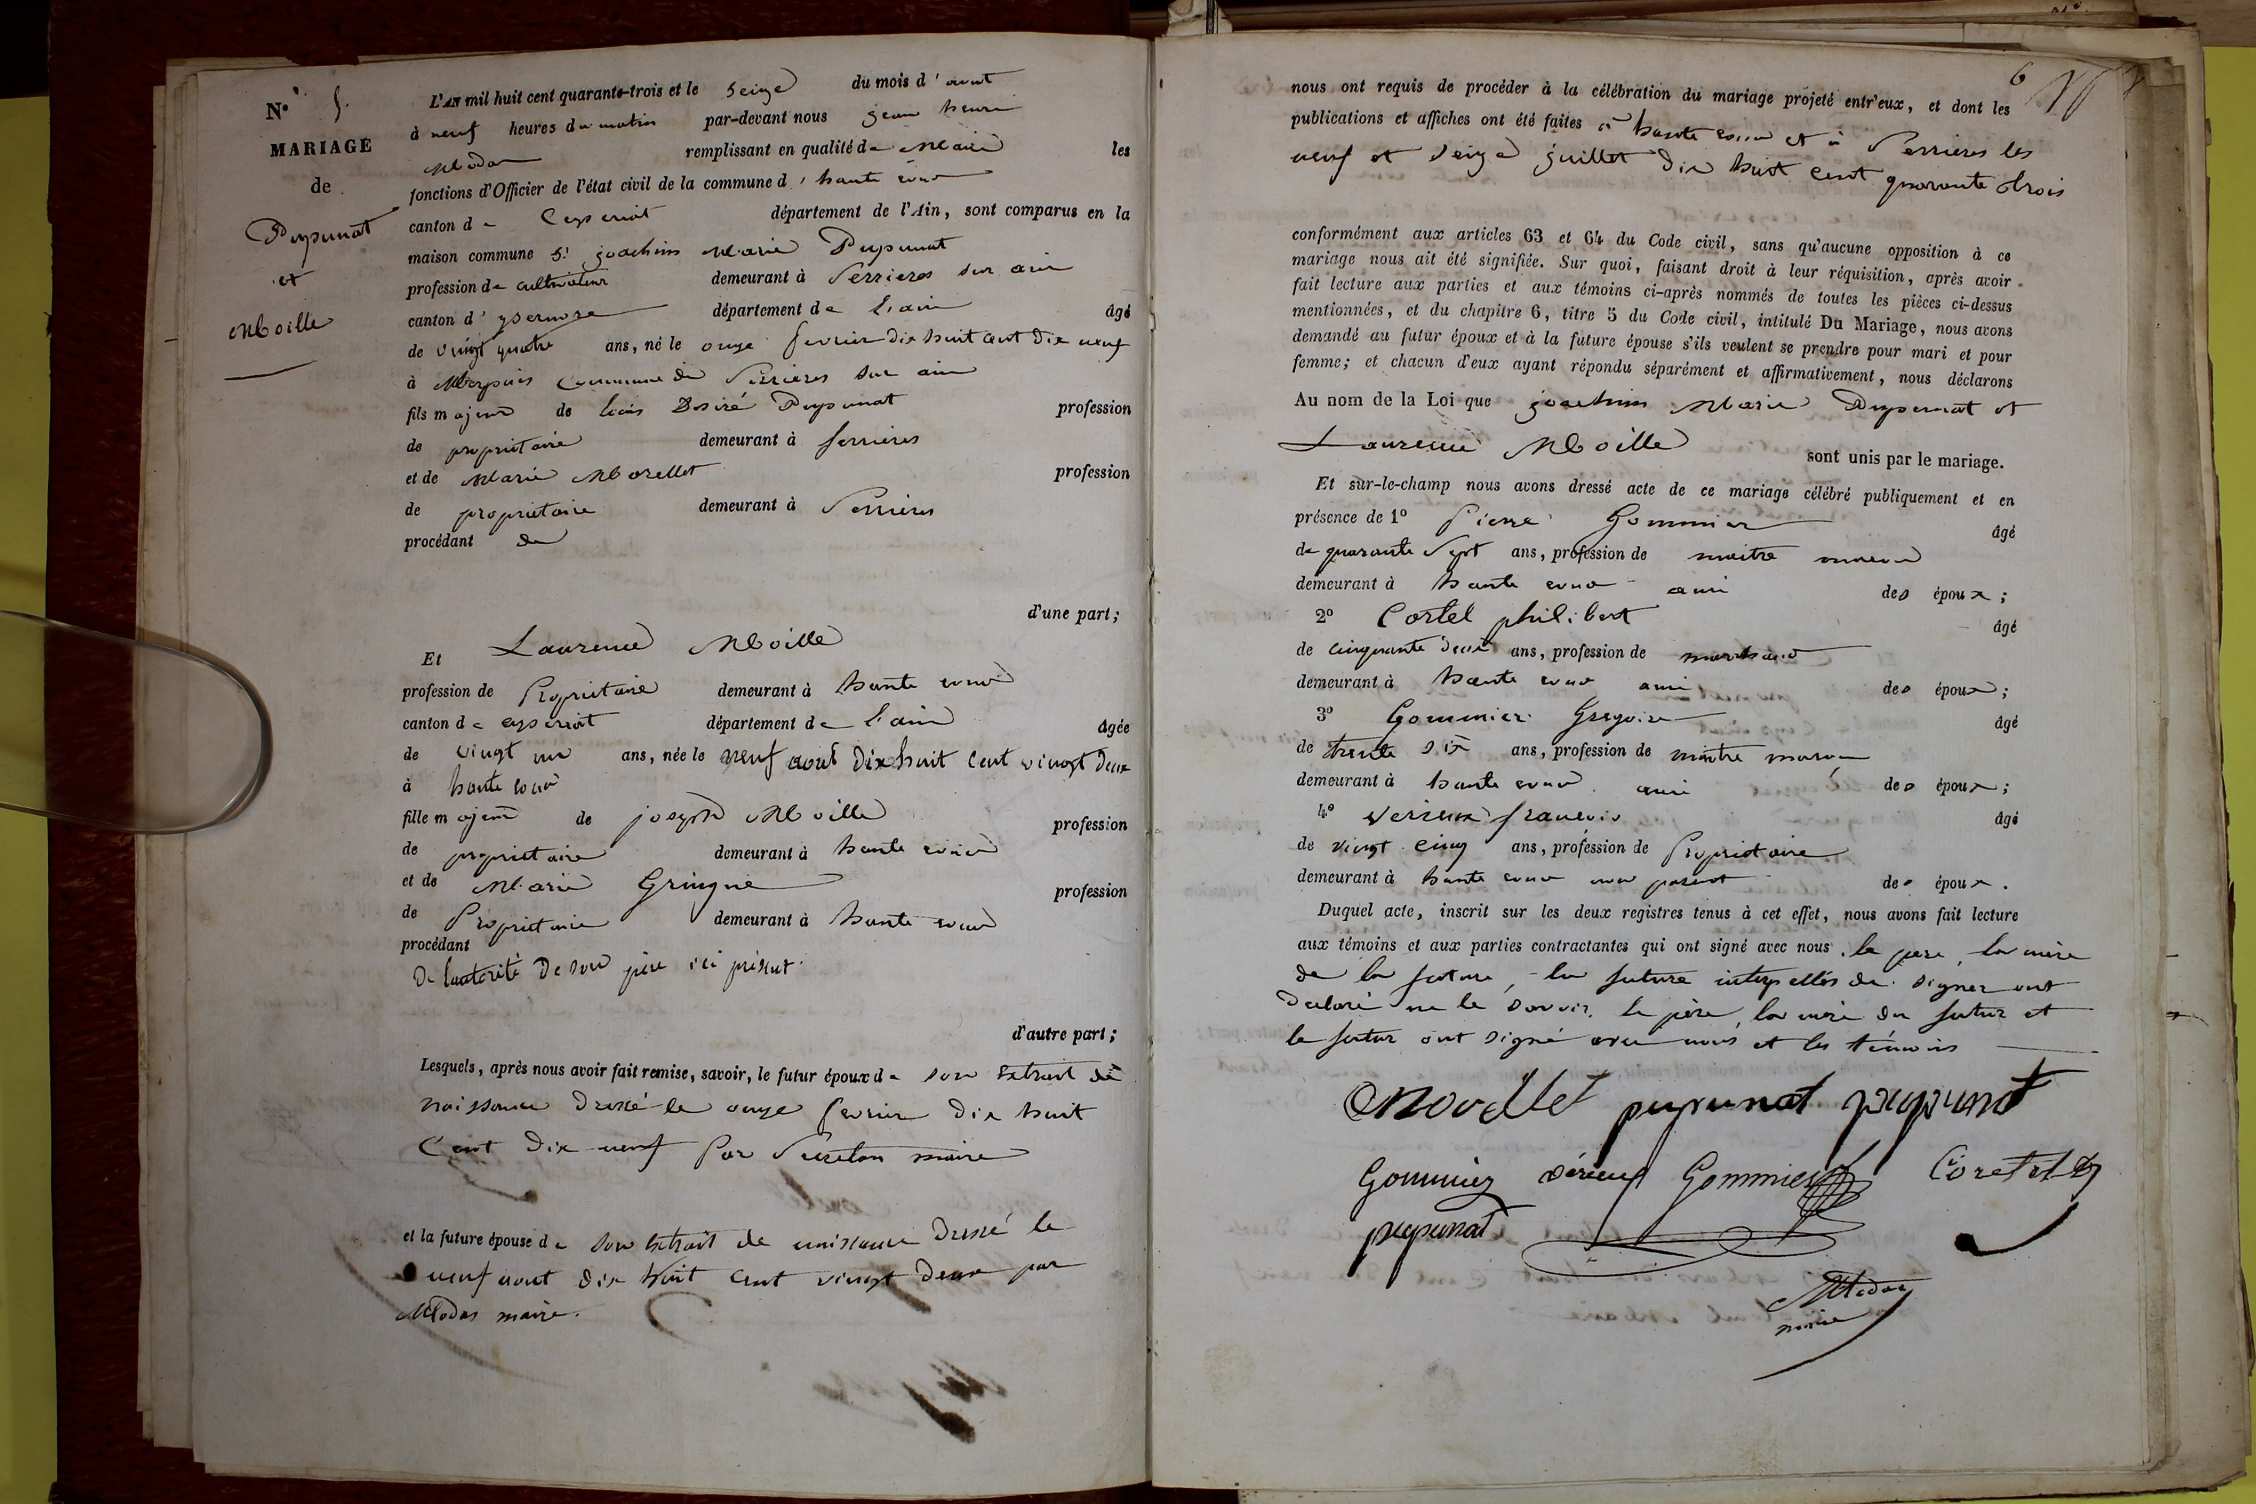 N.° 5.
MARIAGE
de
Puypunat
et
Moille
L'AN mil huit cent quarante-trois et le seize du mois d'aout
à neuf heures du matin par-devant nous jean henri
Modas remplissant en qualité de Maire les
fonctions d'Officier de l'état civil de la commune d'haute
canton de Ceyseriat département de l'Ain, sont comparus en la
maison commune Sr joachim Marie Puypunat
profession de cultivateur demeurant à Serrieres sur ain
canton d'ysernore département de l'ain âgé
de vingt quatre ans, né le onze fevrier dix huit cent dix neuf
à Merpuis Commune de Serrieres sur ain
fils majeur de Louis Désiré Puypunat profession
de propriétaire demeurant à serrières
et de Marie Morellet profession
de propriétaire demeurant à Serrières
procédant de
d'une part;
Et Laurence Moille
profession de Propriétaire demeurant à haute
canton de ceyseriat département de l'ain âgée
de vingt un ans, née le neuf aout dix huit cent vingt deux
à haute
fille majeure de joseph Moille profession
de propriétaire demeurant à haute
et de Marie Gringue profession
de Propriétaire demeurant à haute
procédant
De lautorité De son père ici présent.
d'autre part;
Lesquels, après nous avoir fait remise, savoir, le futur époux de son Extrait de
naissance Dressé le onze fevrier dix huit
Cent dix neuf Par maire
et la future épouse de son Extrait de naissance Dressé le
neuf aout dix huit cent vingt deux par
Modas maire.
6
nous ont requis de procéder à la célébration du mariage projeté entr'eux, et dont les
publications et affiches ont été faites à haute et à Serrieres les
neuf et seize juillet dix huit cent quarante trois
conformément aux articles 63 et 64 du Code civil, sans qu'aucune opposition à ce
mariage nous ait été signifiée. Sur quoi, faisant droit à leur réquisition, après avoir
fait lecture aux parties et aux témoins ci-après nommés de toutes les pièces ci-dessus
mentionnées, et du chapitre 6, titre 5 du Code civil, intitulé Du Mariage, nous avons
demandé au futur époux et à la future épouse s'ils veulent se prendre pour mari et pour
femme; et chacun d'eux ayant répondu séparément et affirmativement, nous déclarons
Au nom de la Loi que joachim Marie Puypunat et
Laurence Moille sont unis par le mariage.
Et sur-le-champ nous avons dressé acte de ce mariage célébré publiquement et en
présence de 1° Pierre Gommier âgé
de quarante Sept ans, profession de maitre maçon
demeurant à haute ami des époux;
2° Cortel philibert âgé
de cinquante deux ans, profession de marchand
demeurant à haute ami des époux;
3° Gommier Gregoire âgé
de trente six ans, profession de maitre maçon
demeurant à haute ami des époux;
4° Verieux francois âgé
de vingt cinq ans, profession de Propriétaire
demeurant à haute non parent des époux.
Duquel acte, inscrit sur les deux registres tenus à cet effet, nous avons fait lecture
aux témoins et aux parties contractantes qui ont signé avec nous. le pere, la mère
de la future, la future interpellés de signer ont
declaré ne le savoir, le père, la mère du futur et
le futur ont signé avec nous et les témoins
morellet puypunat puypunat
Gommier vérieux Gommier
puypunat
Modas
maire